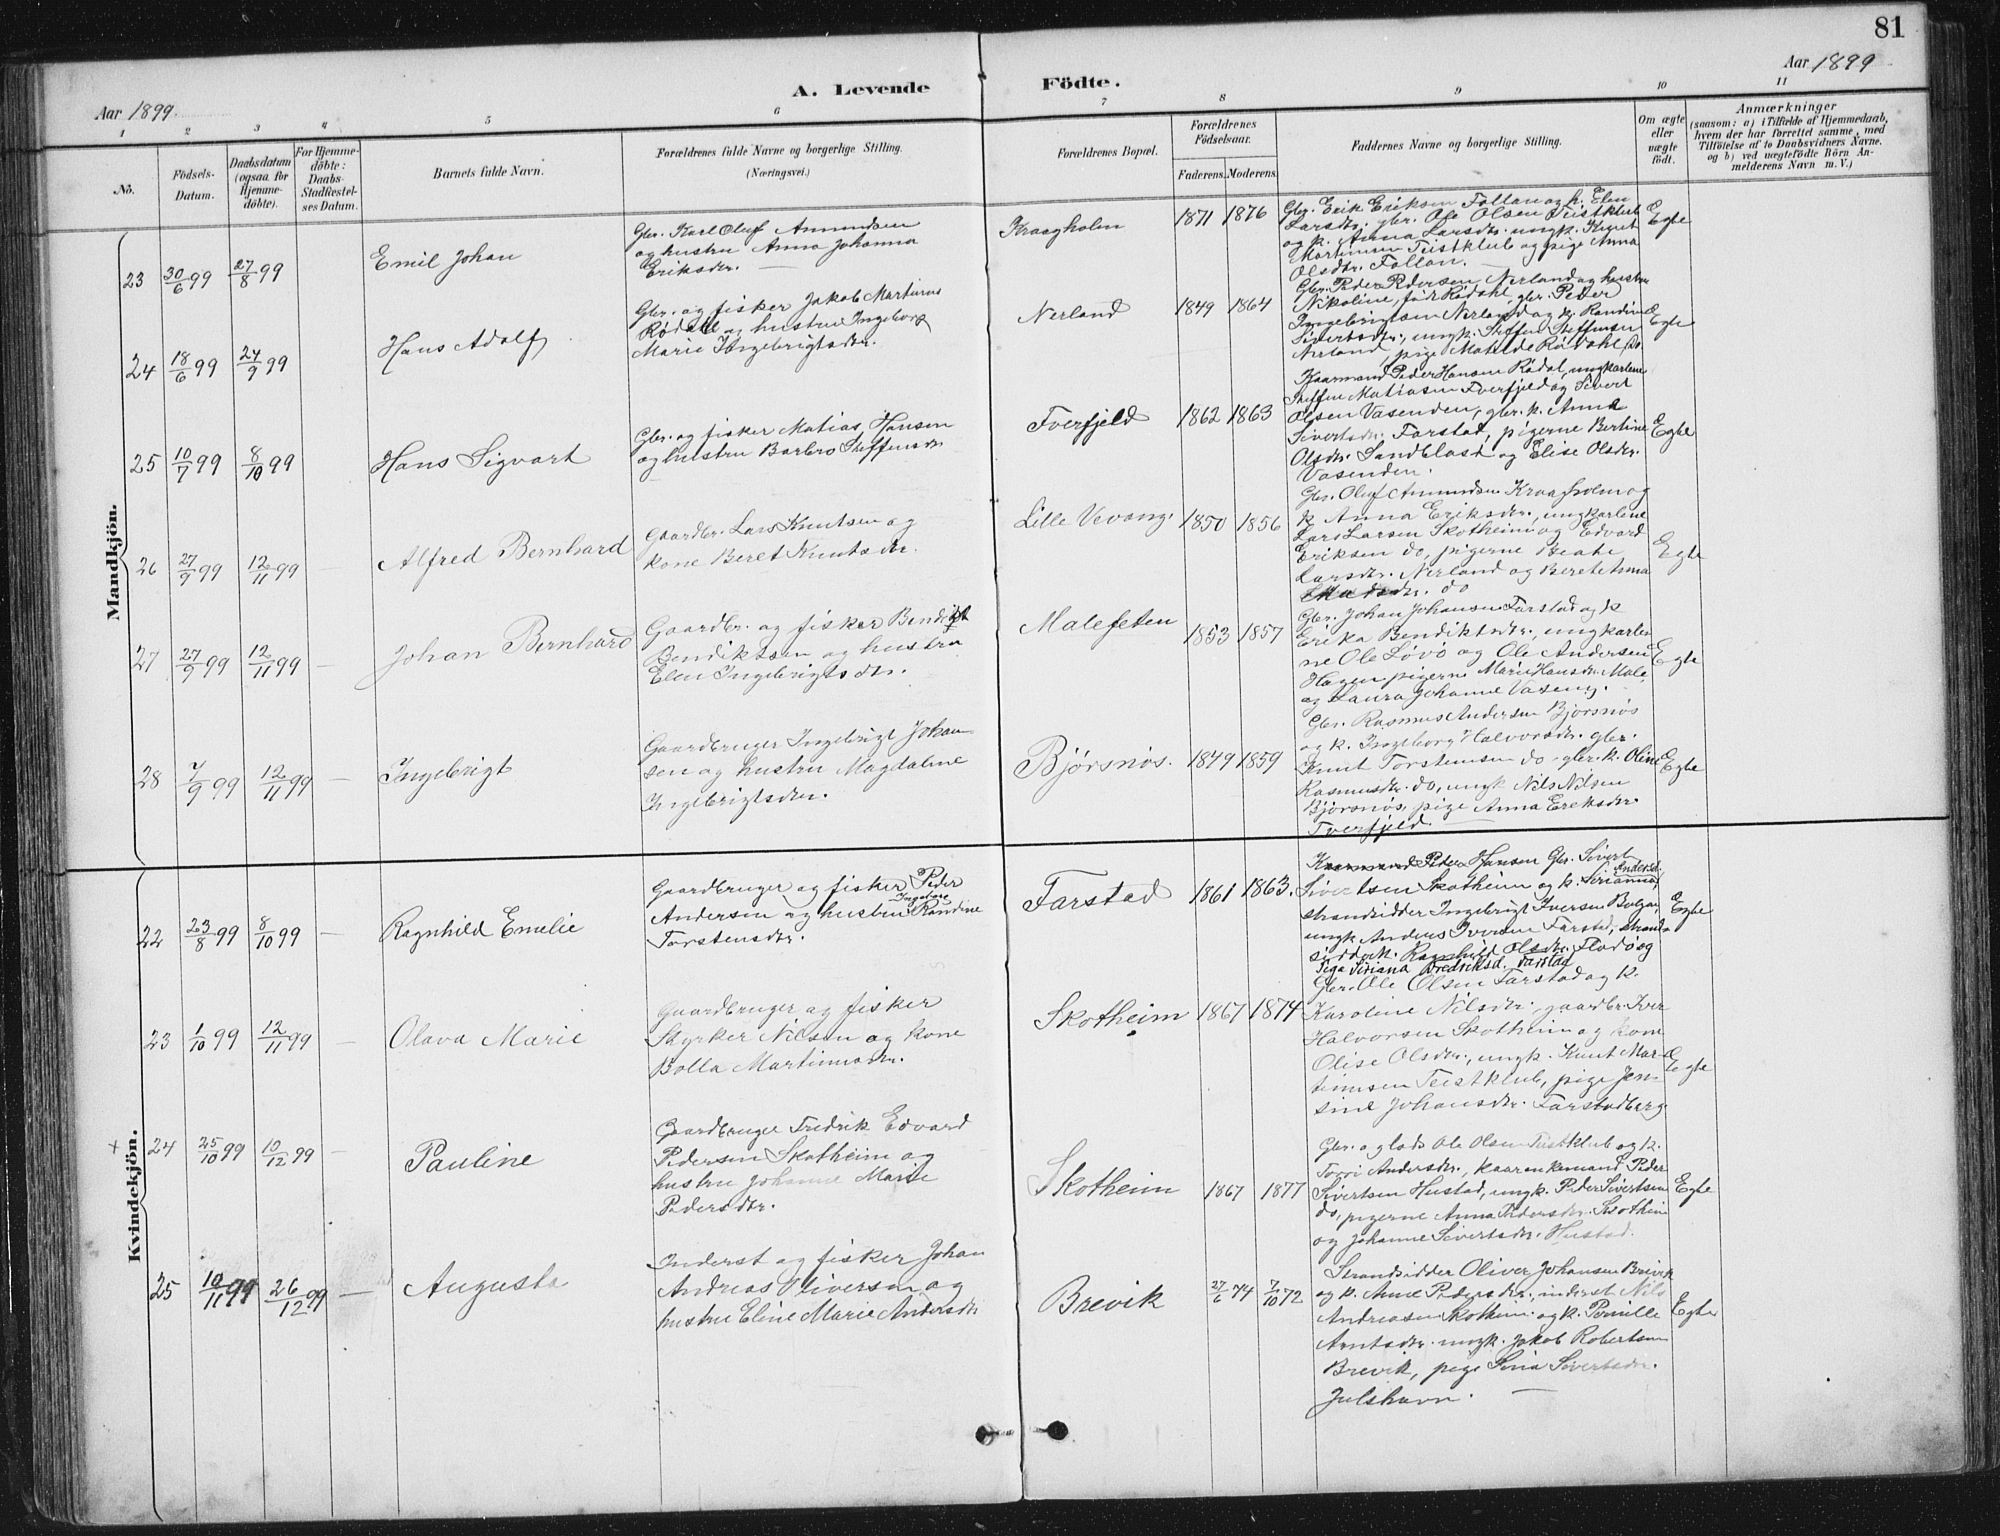 81
Aar 1899
A. Levende Födte.
Aar 1899
1 2 3 4 5 6 7 8 9 10 11
No.
Födsels-
Datum.
Daabsdatum
(ogsaa for
Hjemme-
døbte).
For Hjemme-
döbte:
Daabs-
Stadfestel-
ses Datum.
Barnets fulde Navn.
Forældrenes fulde Navne og borgerlige Stilling.
(Næringsvei.)
Forældrenes Bopæl.
Forældrenes
Födselsaar.
Faderens. Moderens.
Faddernes Navne og borgerlige Stilling.
Om ægte
eller
uægte
født.
Anmærkninger
(saasom: a) i Tilfælde af Hjemmedaab,
hvem der har forrettet samme, med
Tilföielse af to Daabsvidners Navne.
og b) ved uægtefödte Börn An-
melderens Navn m. V.)
Mandkjön.
23 30/6 99 27/8 99 Emil Johan
Gbr. Karl Oluf Amundsen
og hustru Anna Johanna
Eriksdtr.
Kraagholm 1871 1876
Gbr. Erik Eriksen Follan og h. Elen
Larsdtr. gbr. Ole Olsen Teistklub
og k. Anna Larsdtr. ungk. Knut
Martinsen Teistklub og pige Anna
Olsdtr. Follan.
Egte
24 18/6 99 24/9 99 Hans Adolf
Gbr. og fisker Jakob Martinus
Rødahl og hustru Ingeborg
Marie Ingebrigtsdtr.
Nerland 1849 1864
Gbr. Peder Pedersen Nerland og hustru
Nikoline, født Rødahl, gbr. Peder
Ingebrigtsen Nerland og k. Randine
Sivertsdtr., ungk. Steffen Steffensen
Nerland, pige Matilde Rødahl do.
Egte
25 10/7 99 8/10 99 Hans Sigvart
Gbr. og fisker Matias Hansen
og hustru Barbro Steffensdtr
Tverfjeld 1862 1863
Kaarmand Peder Hansen Rødal, ungkarlene
Steffen Matiasen Tverfjeld og Sivert
Olsen Vasenden, gbr. k. Anne
Sivertsdtr. Farstad, pigerne Bertine
Olsdtr. Sandblast og Elise Olsdtr.
Vasenden.
Egte
26 27/9 99 12/11 99 – Alfred Bernhard
Gaardbr. Lars Knutsen og
kone Beret Knutsdtr.
Lille Vevang. 1850 1856
Gbr. Oluf Amundsen Kraagholm og
k Anna Eriksdtr., ungkarlene
Lars Larsen Skotheim og Edvard
Eriksen do, pigerne Beate
Larsdtr. Nerland og Berete Anna
do
Egte
27 27/9 99 12/11 99 – Johan Bernhard
Gaardbr. og fisker Bendikt
Bendiktsen og hustru
Elen Ingebrigtsdtr.
Malefeten 1853 1857
Gbr. Johan Johansen Farstad og k
Erika Bendiktsdtr., ungkarle
ne Ole Løvø og Ole Andersen
Hagen pigerne Marie Hansdtr. Male
og Laura Johanne Vaseng.
Egte
28 7/9 99 12/11 99 – Ingebrigt
Gaardbruger Ingebrigt Johan-
sen og hustru Magdaline
Ingebrigtsdtr.
Bjørsnøs. 1849 1859
Gbr. Rasmus Andersen Bjørsnøs
og k. Ingeborg Halvorsdtr. gbr.
Knut Torstensen do - gbr. k. Oline
Rasmusdtr. do, ungk Nils Nilsen
Bjørsnøs, pige Anna Eriksdtr.
Tverfjeld.
Egte
Kvindekjön.
22 23/8 99 8/10 99 – Ragnhild Emelie
Gaardbruger og fisker Peder
Andersen og hustru Ingeborg Randine
Torstensdtr.
Farstad 1861 1863.
Kaarmand Peder Hansen Gbr. Sivert
Sivertsen Skotheim og k. Serianna Andersd.
strandsidder Ingebrigt Iversen Bolgan,
ungk Anders Iversen Farstad, strand-
sidderk. Ragnhild Olsdtr. Flodø og
Pige Siriana Fredriksd. Farstad
Egte
23 1/10 99 12/11 99 – Olava Marie
Gaardbruger og fisker
Styrker Nilsen og kone
Bolla Martinusdtr.
Skotheim 1867 1874
Gbr. Ole Olsen Farstad og k.
Karoline Nilsdtr. gaardbr. Iver
Halvorsen Skotheim og kone
Olise Olsdtr., ungk. Knut Mar-
tinusen Teistklub, pige Jen-
sine Johansdtr. Farstadberg
Egte
+ 24 25/10 99 10/12 99 – Pauline
Gaardbruger Fredrik Edvard
Pedersen Skotheim og
hustru Johanne Marie
Pedersdtr.
Skotheim 1867 1877
Gbr. og lods Ole Olsen Teistklub og k.
Torri Andersdtr., kaarenkemand Peder
Sivertsen Hustad, ungk. Peder Sivertsen
do, pigerne Anna Pedersdtr. Skotheim
og Johanne Sivertsdtr. Hustad.
Egte
25 10/11 99 26/12 99 – Augusta
Inderst og fisker Johan
Andreas Oliversen og
hustru Eline Marie Andersdtr
Brevik 27/6 74 7/10 72
Strandsidder Oliver Johansen Brevik
og k. Anne Pedersdtr. inderst Nils
Andreasen Skotheim og k. Pernille
Arntsdtr. ungk. Jakob Robertsen
Brevik, pige Sina Sivertsdtr.
Julshavn.
Egte